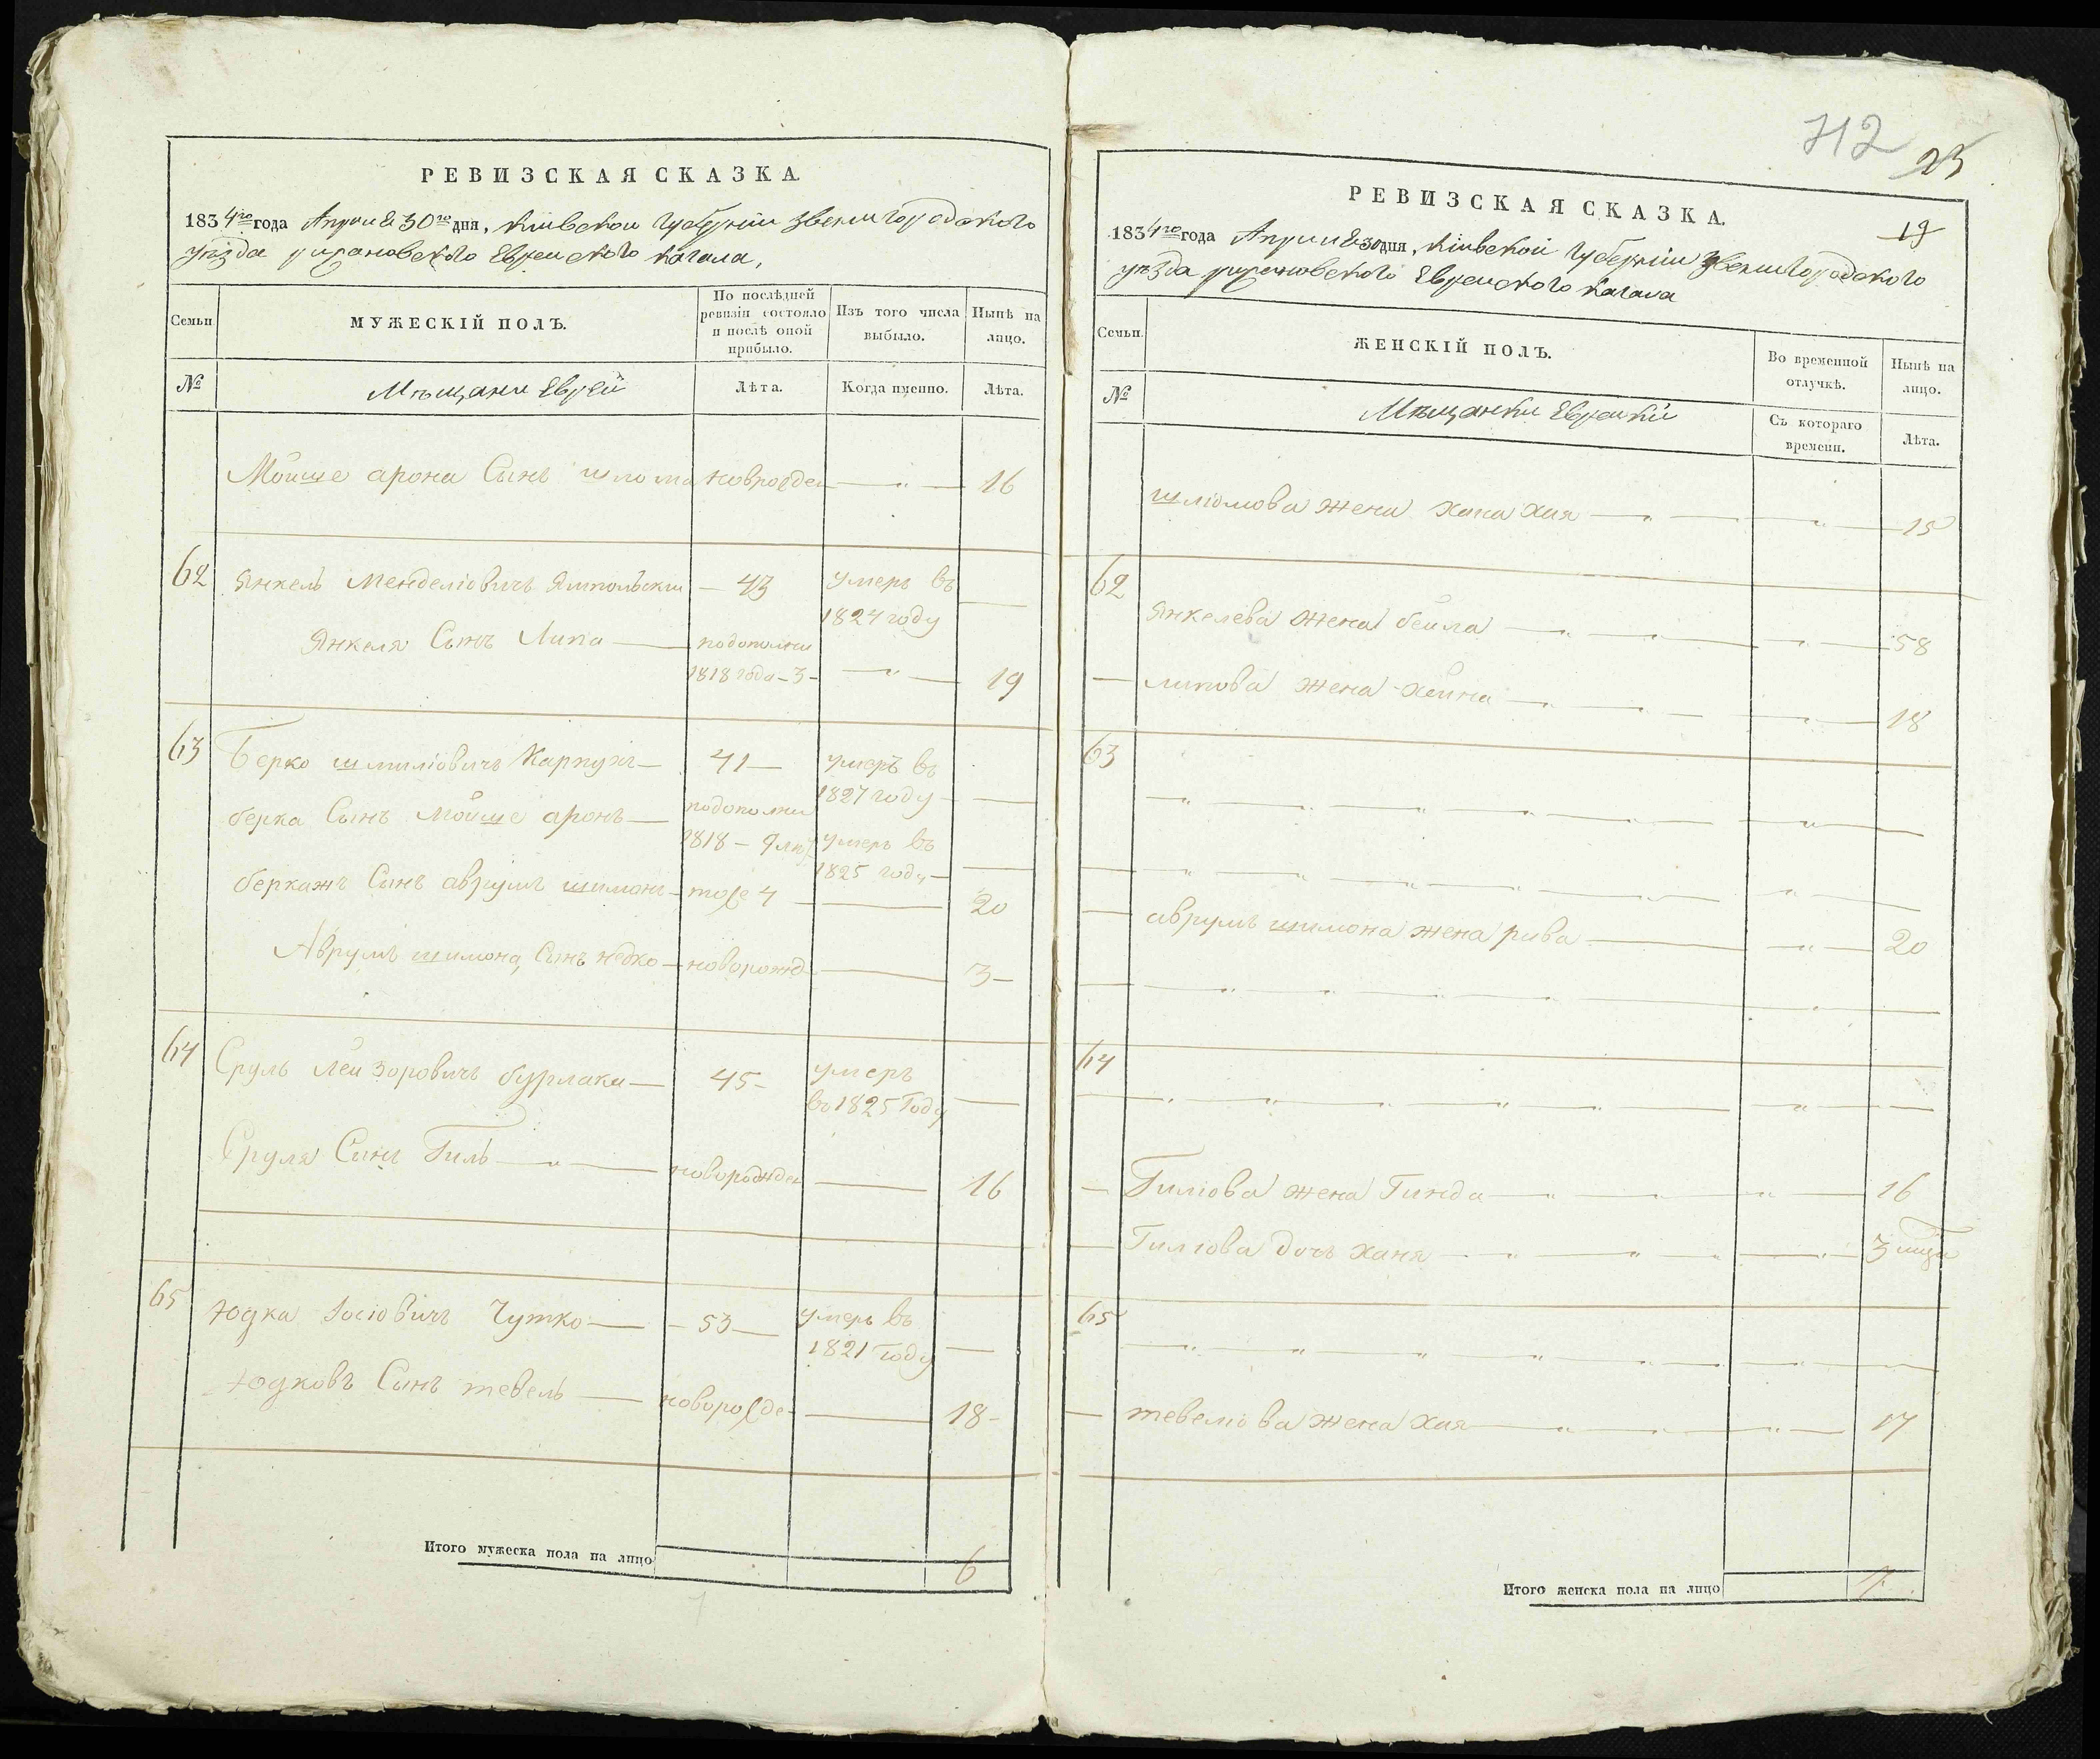 РЕВИЗСКАЯ СКАЗКА
1834го года Априля 30го дня, Кіивской Губерніи Звенигородского
уѣзда рижановского Евреиского Кагала,
Семьи
МУЖЕСКІЙ ПОЛЪ.
По послѣдней ревизіи состояло и послѣ оной прибыло.
Изъ того числа выбыло.
Нынѣ на лицо.
№
Мѣщани Еврей
Лѣта.
Когда именно.
Лѣта.
Мойше арона Сынъ шлома новрожден — " — 16
62 Янкель Менделіовичъ Ямпольски — 43 умеръ въ
1824 году —
Янкеля Сынъ Липа — подополни
1818 года - 3 - — " — 19
63 Берко шмиліовичъ Карпухъ — 41 — умеръ въ
1827 году —
берка Сынъ Мойше аронъ — подополни
1818 — 9 лѣт умеръ въ
1825 году —
беркажъ Сынъ аврумъ шимонъ — тоже 4 — 20
Аврумъ шимона, Сынъ — новорожд — 3 —
64 Сруль Лейзоровичъ бурлака — 45 - умеръ
въ 1825 Году —
Сруля Синъ Гиль — " — новорожден — 16
65 Юдка Іосіовичъ Чутко — - 53 — умеръ въ
1821 Году —
Юдковъ Сынъ тевель — новорожде - — 18 -
Итого мужеска пола на лицо 6
712
23
19
РЕВИЗСКАЯ СКАЗКА.
1834го года Априля 30 дня, Кіивской Губерніи Звенигородского
уѣзда рижановского Евреиского Кагала
Семьи.
ЖЕНСКІЙ ПОЛЪ.
Во временной отлучкѣ.
Нынѣ на лицо.
№
Мѣщанки Евреики
Съ котораго времени.
Лѣта.
шліомова жена хана хая — " — " — 15
62
Янкелева жена бейла — " — " — 58
— липова жена хейна — " — " — 18
63
— " — " — " —
— " — " — " —
— аврумъ шимона жена рива — " — 20
— " — " — " —
64
— " — " — " —
— Гиліова жена Гинда — " — " — 16
— Гиліова дочъ ханя — " — " — 3 мѣца
65
— " — " — " —
— тевеліова жена хая — " — " — 17
Итого женска пола на лицо 7